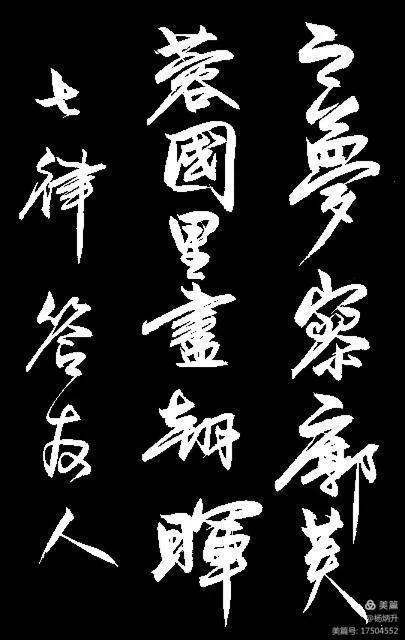 之夢寥廓芙
蓉國里盡朝暉
七律答友人
美篇
@杨炳升
美篇号: 17504552